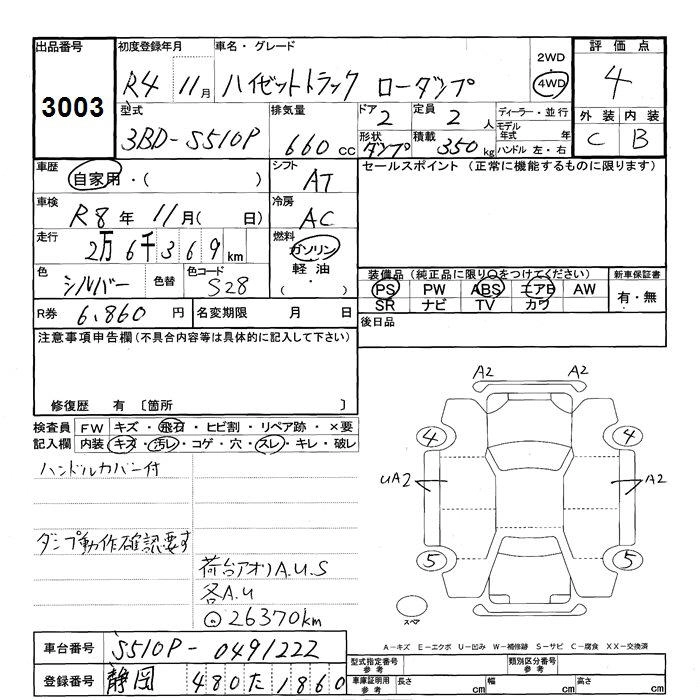 出品番号 初度登録年月 車名・グレード 2WD・4WD 評価点
3003 R4 11月 ハイゼットトラック ローダンプ 4
型式 排気量 ドア 定員 ディーラー・並行 外装 内装
3BD-S510P 660cc 2 2人 モデル年式 年 C B
形状 ダンプ 積載 350kg ハンドル 左・右
車歴 自家用・( ) シフト AT セールスポイント (正常に機能するものに限ります)
車検 R8年 11月( 日) 冷房 AC
走行 2万6千369km 燃料 ガソリン
軽油
・
( )
色 シルバー 色替 色コード S28
装備品(純正品に限り○をつけてください) 新車保証書
PS PW ABS エアB AW 有・無
SR ナビ TV カワ
R券 6,860円 名変期限 月 日 後日品
注意事項申告欄(不具合内容等は具体的に記入して下さい)
修復歴 有 〔箇所 〕
検査員 FW キズ・飛石・ヒビ割・リペア跡・×要
記入欄 内装 キズ・汚レ・コゲ・穴・スレ・キレ・破レ
ハンドルカバー付
ダンプ動作確認要す
荷台アオリA.U.S
各A.U
⊙26370km
A2 A2
4 4
UA2 A2
5 5
スペア
A-キズ E-エクボ U-凹み W-補修跡 S-サビ C-腐食 XX-交換済
車台番号 S510P-0491222
登録番号 静岡 480た1860
型式指定番号 参考 類別区分番号 参考
車庫証明用 参考 長さ cm 幅 cm 高さ cm